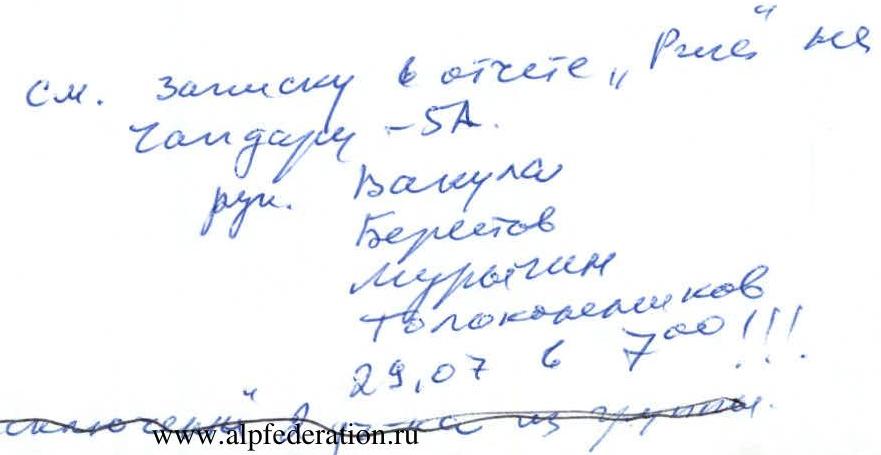 См. записку в отчете „Рига“ на
Чапдару – 5А.
рук. Вакула
Берестов
Мурычин
Толоконников
29,07 в 7⁰⁰ !!!
из группы.
www.alpfederation.ru